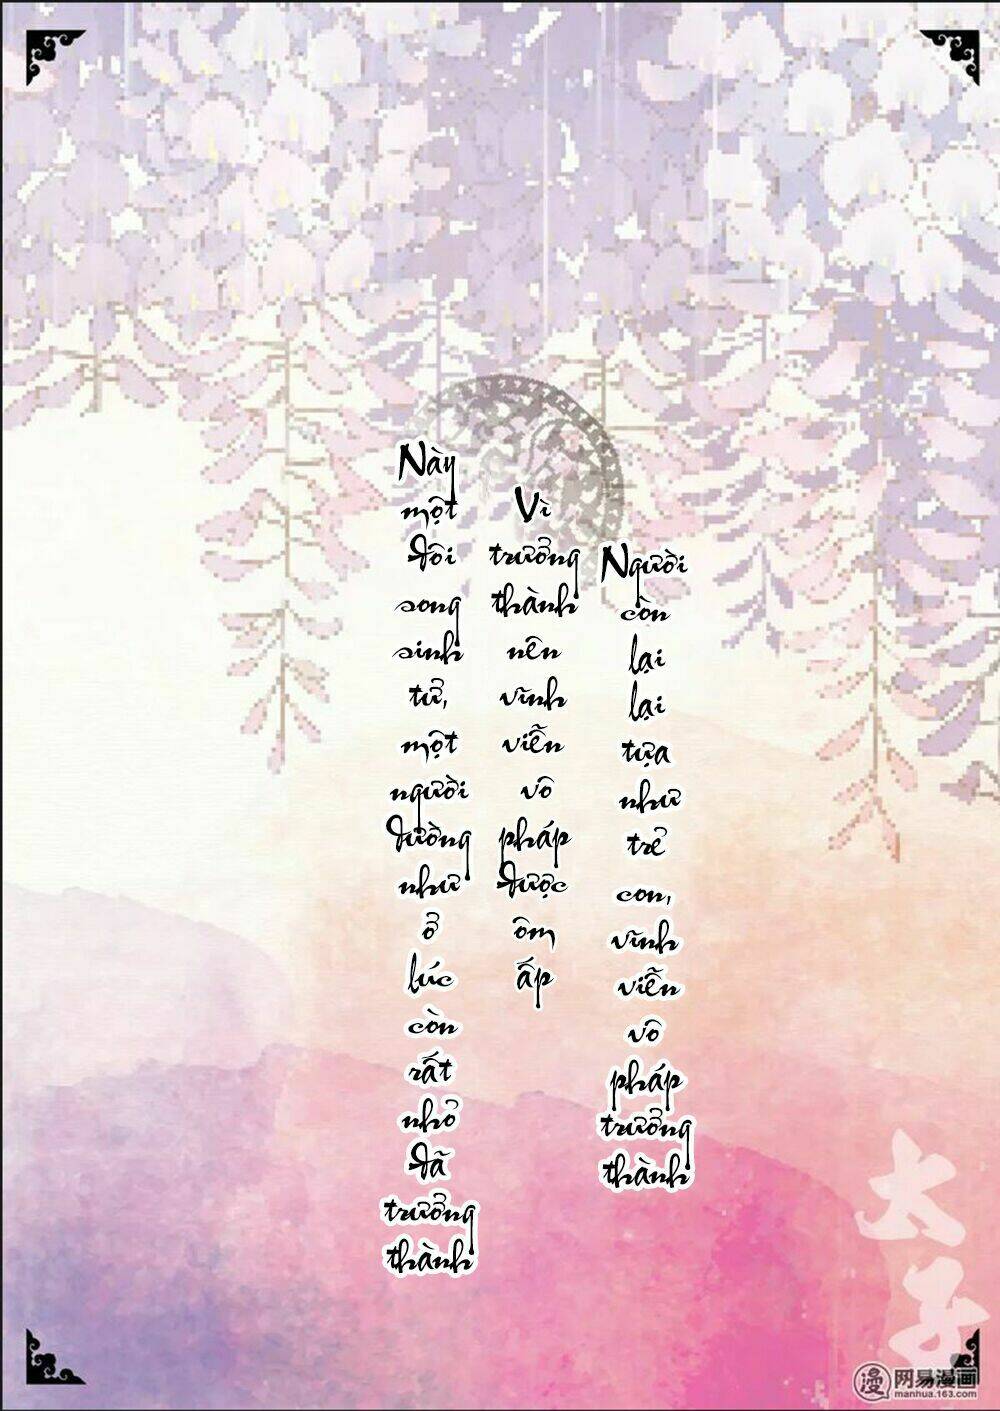 Này một đôi song sinh tử, một người dường như ở lúc còn rất nhỏ đã trưởng thành
Vì trưởng thành nên vĩnh viễn vô pháp được ôm ấp
Người còn lại lại tựa như trẻ con, vĩnh viễn vô pháp trưởng thành
太子
漫 网易漫画
manhua.163.com